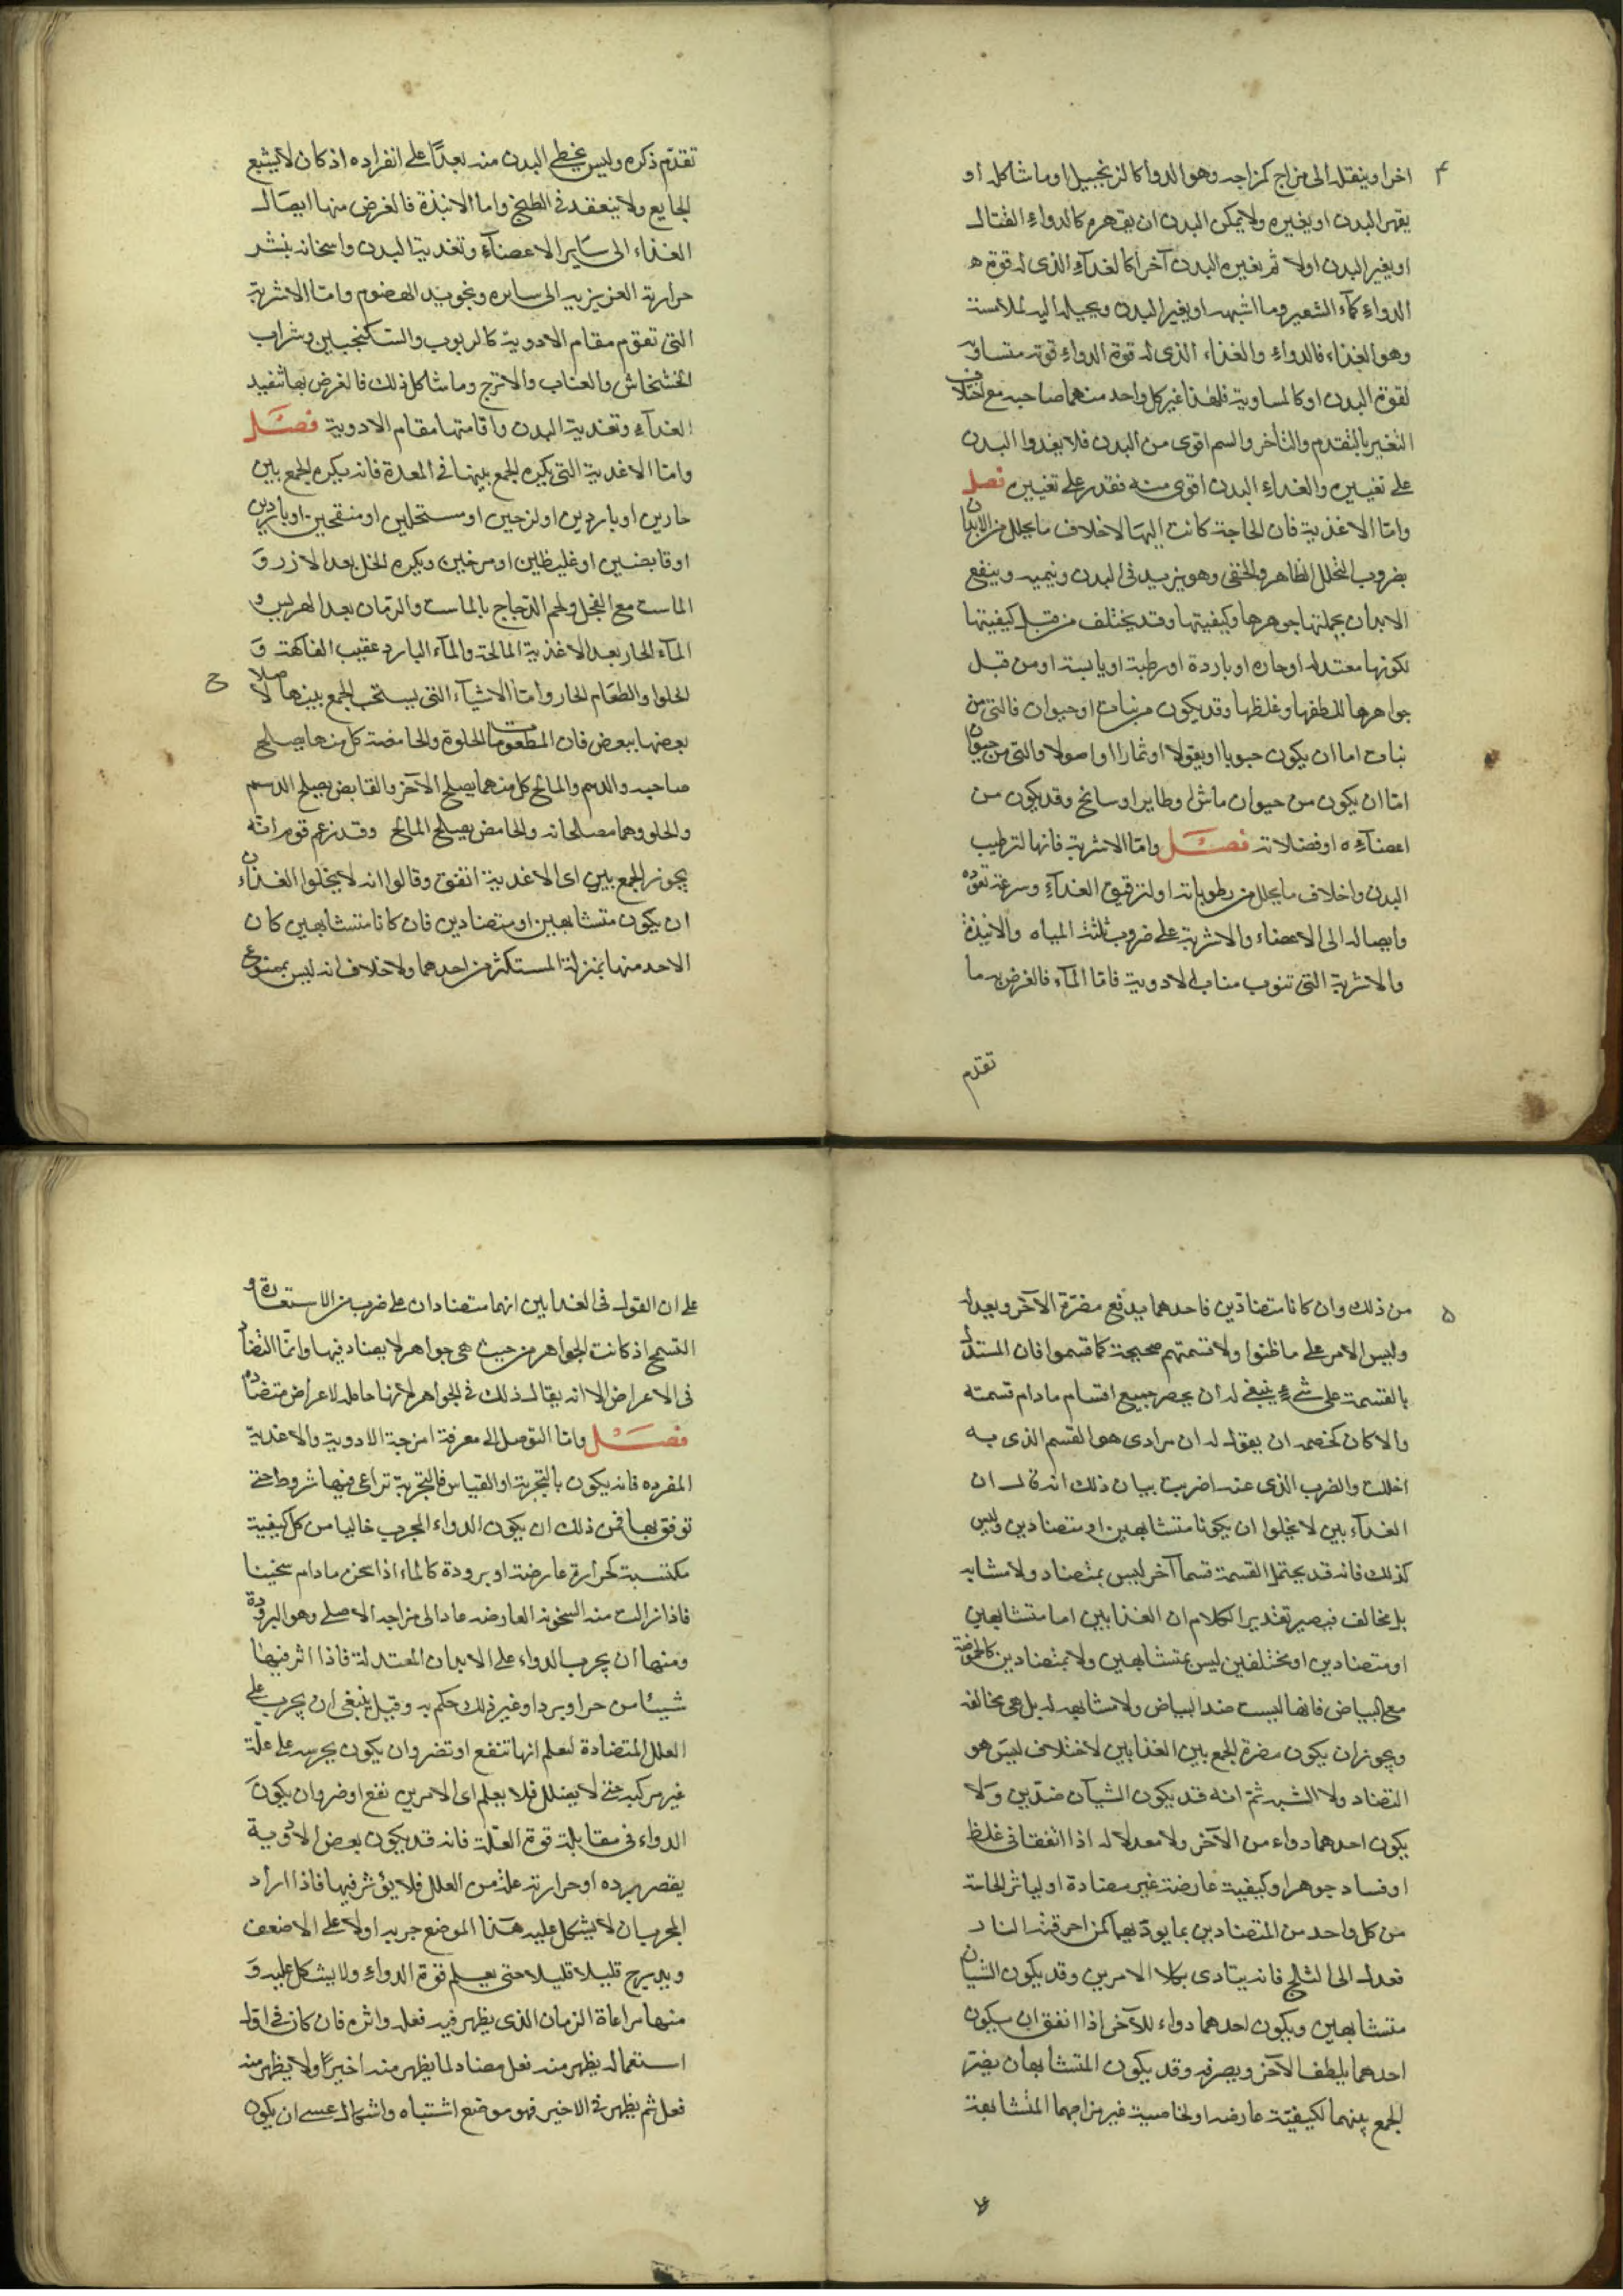 ۴
اخر او ينقله الى مزاج كمزاجه وهو الدوا كالزنجبيل او ما شاكله او
يقهر البدن او يغيره ولا يمكن البدن ان يقهره كالدواء القتال
او يغير البدن اولا ثم يغيره البدن آخرا كالغذآء الذى له قوة
الدواء كمآء الشعير وما اشبهه او يغير البدن ويحيله اليه لملابسته
وهو الغذاء فالدواء والغذاء الذى له قوة الدواء قوته متساوق
لقوة البدن او كالمساوية فلهذا غير كل واحد منهما صاحبه مع اختلاف
التغير بالتقدم والتأخر والسم اقوى من البدن فلا يغدوا البدن
على تغييره والغداء البدن اقوى منه فقدر على تغييره فصل
وامّا الاغذية فان الحاجة كانت اليها لاخلاف ما يحلل من الابدان
بضروب التحلل الظاهر والخفى وهو يزيد فى البدن وينميه وينفع
الابدان بجملتها جوهرها وكيفيتها وقد يختلف من قبل كيفيتها
لكونها معتدله او حاره او باردة او رطبة او يابسة او من قبل
جواهرها للطفها وغلظها وقد يكون من نبات او حيوان فالتى من
نبات اما ان يكون حبوبا او بقولا او ثمارا او اصولا والتى من حيوان
امّا ان يكون من حيوان ماش او طاير او سابح وقد يكون من
اعضآءه او فضلاته فصل وامّا الاشربة فانها لترطيب
البدن واخلاف ما يحلل من رطوباته او لترقيق الغذآء وسرعة نفوذه
وايصاله الى الاعضاء والاشربة على ضروب ثلثة المياه والانبذة
والاشربة التى تنوب مناب الادوية فامّا المآء فالغرض به ما
تقدم
تقدّم ذكره وليس يحظى البدن منه بغذآء على انفراده اذ كان لا يشبع
الجايع ولا ينعقد فى الطبخ واما الانبذة فالغرض منها ايصال
الغذاء الى سآير الاعضآء وتغدية البدن واسخانه بنشر
حرارته الغريزيه الى سايره وتجويد الهضوم وامّا الاشربة
التى تقوم مقام الادوية كالربوب والسكنجبين وشراب
الخشخاش والعناب والاترج وما شاكل ذلك فالغرض بها تنفيد
الغذآء وتغدية البدن واقامتها مقام الادوية فصل
وامّا الاغدية التى يكره الجمع بينها فى المعدة فانه يكره الجمع بين
حارين او باردين او لزجين او مستحيلين او منفخين او باردين
او قابضين او غليظين او مرخيين ويكره الخل بعد الارز و
الماست مع الفجل ولحم الدجاج بالماست والرمان بعد الهريس و
المآء الحار بعد الاغذية المالحة والمآء البارد عقيب الفآكهة و
الحلوا والطعام الحار وامّا الاشيآء التى يستحب الجمع بينها لاصلاح
بعضها ببعض فان المطعومات الحلوة والحامضة كل منهما يصلح
صاحبه والدسم والمالح كل منهما يصلح الآخر والقابض يصلح الدسم
والحلو وهما مصلحانه والحامض يصلح المالح وقد زعم قوم انّه
يجوز الجمع بين اى الاغدية اتفق وقالوا انه لا يخلوا الغذآءان
ان يكون متشابهين او متضادين فان كانا متشابهين كان
الاحد منها بمنزلة المستكثر من احدهما ولا خلاف انه ليس بممنوع
۵
من ذلك وان كانا متضادّين فاحدهما يدفع مضرّة الآخر ويعدله
وليس الامر على ما ظنوا ولا قسمتهم صحيحة كما قسموا فان المستدل
بالقسمة على شئ ينبغى له ان يحصر جميع اقسام مادام قسمته
والا كان لخصمه ان يقول له ان مرادى هو القسم الذى به
اخللت والضرب الذى عنه اضربت بيان ذلك انه قال ان
الغدآء بين لا يخلوا ان يكونا متشابهين او متضادين وليس
كذلك فانه قد يحتمل القسمة قسما آخر ليس بمتضاد ولا مشابه
بل مخالف فيصير تقدير الكلام ان الغذايين اما متشابهين
او متضادين او مختلفين ليس بمتشابهين ولا بمتضادين كالحموضة
مع البياض فانها ليست ضد البياض ولا مشابهه له بل هى مخالفه
ويجوز ان يكون مضرة الجمع بين الغذايين لاختلاف ليس هو
التضاد ولا الشبه ثمّ انه قد يكون الشيآن ضدّين ولا
يكون احدهما دواء من الآخر ولا معدلا له اذا اتفقا فى غلظ
او فساد جوهر او كيفية عارضة غير مضادة او لياثر الحاسة
من كل واحد من المتضادين بما يوذيهما كمن احرقته النار
فعدل الى الثلج فانه يتادى بكلا الامرين وقد يكون الشيآن
متشابهين ويكون احدهما دواء للآخر اذا اتفق ان يكون
احدهما يلطف الآخر ويصرفه وقد يكون المتشابهان يضرّ
الجمع بينهما لكيفيّة عارضه او لخاصية غير مزاجهما المتشابهة
على
على ان القول فى الغدايين انهما متضادان على ضرب من الاستعارة و
التسمح اذ كانت الجواهر من حيث هى جواهر لا يضاد فيها وانّما التضاد
فى الاعراض الا انه يقال ذلك فى الجواهر لأنها حامله لاعراض متضاده
فصل وامّا التوصل الى معرفة امزجة الادوية والاغدية
المفرده فانه يكون بالتجربة او القياس فالتجربة تراعى فيها شروط حتى
توفق بها فمن ذلك ان يكون الدواء المجرب خاليا من كل كيفية
مكتسبة كحرارة عارضة او برودة كالماء اذا سخن مادام سخينا
فاذا زالت منه السخونه العارضه عاد الى مزاجه الاصلى وهو البرودة
ومنها ان يجرب الدواء على الابدان المعتدلة فاذا اثر فيها
شيئا من حر او برد او غير ذلك حكم به وقيل ينبغى ان يجرب على
العلل المتضادة ليعلم انها تنفع او تضر وان يكون يجربه على علّة
غير مركبه حتى لا يضلل فلا يعلم اى الامرين نفع او ضر وان يكون
الدواء فى مقابلة قوة العلّة فانه قد يكون بعض الادوية
يقصر برده او حرارته علة من العلل فلا يؤثر فيها فاذا اراد
المجرب ان لا يشكل عليه هذا الموضع جربه اولا على الاضعف
ويدرج قليلا قليلا حتى يعلم قوة الدواء ولا يشكل عليه و
منها مراعاة الزمان الذى يظهر فيه فعله واثره فان كان فى اول
استعماله يظهر منه فعل مضاد لما يظهر منه اخيرًا ولا يظهر منه
فعل ثم يظهر فى الاخير فهو موضع اشتباه واشكال عسى ان يكون